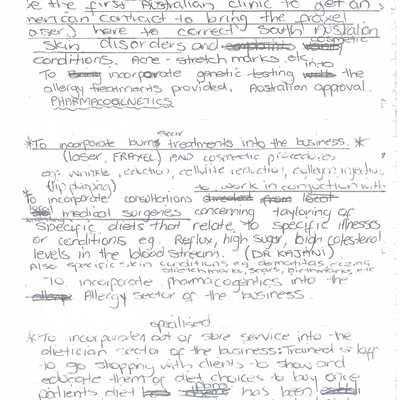 be the first Australian clinic to get an
American contract to bring the fraxel
laser) here to correct South Australian
skin disorders and complaints cosmetic
conditions. Acne - stretch marks. etc.
To incorporate genetic testing into the
allergy treatments provided, Australian approval.
PHARMACOGENETICS.
scar
*To incorporate burns treatments into the business. *
(laser, FRAXEL) AND cosmetic procedures
eg: wrinkle reduction, cellulite reduction, collagen injections
(lip plumping) to work in conjunction with
To incorporate consultations directed from local
local medical surgeries concerning tayloring of
specific diets that relate to specific illnesses
or conditions eg. Reflux, high sugar, high colesterol
levels in the blood stream. (DR KAJANI)
Also specific skin conditions eg. dermatitas,
stretchmarks, scars, birthmarks etc
To incorporate pharmacogentics into the
Allergy sector of the business
specilised
*To incorporate out of store service into the
dietician sector of the business: Trained staff
to go shopping with clients to show and
educate them of diet choices to buy once
patients diet has been